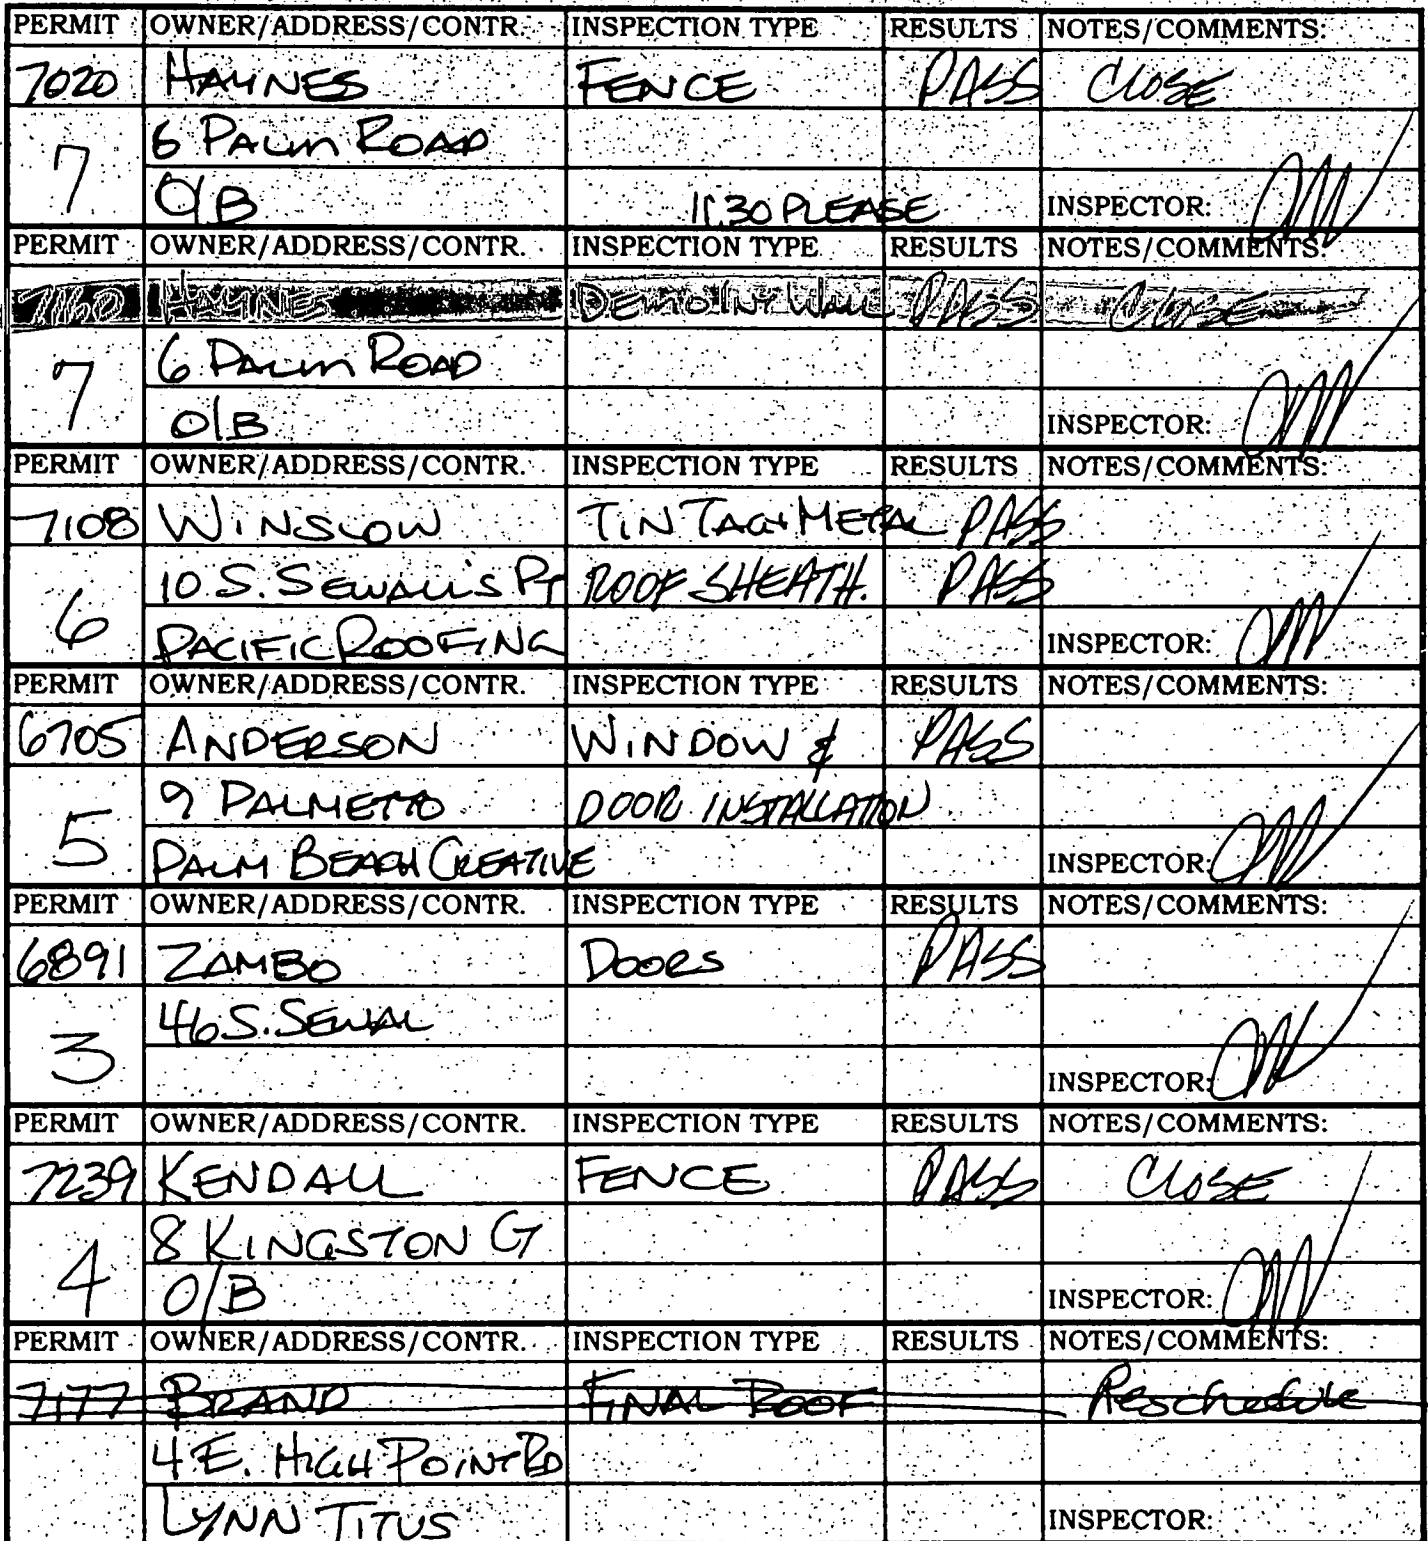 PERMIT OWNER/ADDRESS/CONTR. INSPECTION TYPE RESULTS NOTES/COMMENTS:
7020 HAYNES FENCE PASS CLOSE
7 6 PALM ROAD
O/B 11:30 PLEASE INSPECTOR:
PERMIT OWNER/ADDRESS/CONTR. INSPECTION TYPE RESULTS NOTES/COMMENTS:
7160 HAYNES DEMO INT WALL PASS CLOSE
7 6 PALM ROAD
O/B INSPECTOR:
PERMIT OWNER/ADDRESS/CONTR. INSPECTION TYPE RESULTS NOTES/COMMENTS:
7108 WINSLOW TIN TAG+METAL PASS
6 10 S. SEWALL'S PT ROOF SHEATH. PASS
PACIFIC ROOFING INSPECTOR:
PERMIT OWNER/ADDRESS/CONTR. INSPECTION TYPE RESULTS NOTES/COMMENTS:
6705 ANDERSON WINDOW & PASS
5 9 PALMETTO DOOR INSTALLATION
PALM BEACH CREATIVE INSPECTOR:
PERMIT OWNER/ADDRESS/CONTR. INSPECTION TYPE RESULTS NOTES/COMMENTS:
6891 ZAMBO DOORS PASS
3 46 S. SEWAL
INSPECTOR:
PERMIT OWNER/ADDRESS/CONTR. INSPECTION TYPE RESULTS NOTES/COMMENTS:
7239 KENDALL FENCE PASS CLOSE
4 8 KINGSTON CT
O/B INSPECTOR:
PERMIT OWNER/ADDRESS/CONTR. INSPECTION TYPE RESULTS NOTES/COMMENTS:
7177 BRAND FINAL ROOF Reschedule
4 E. HIGH POINT RD
LYNN TITUS INSPECTOR: